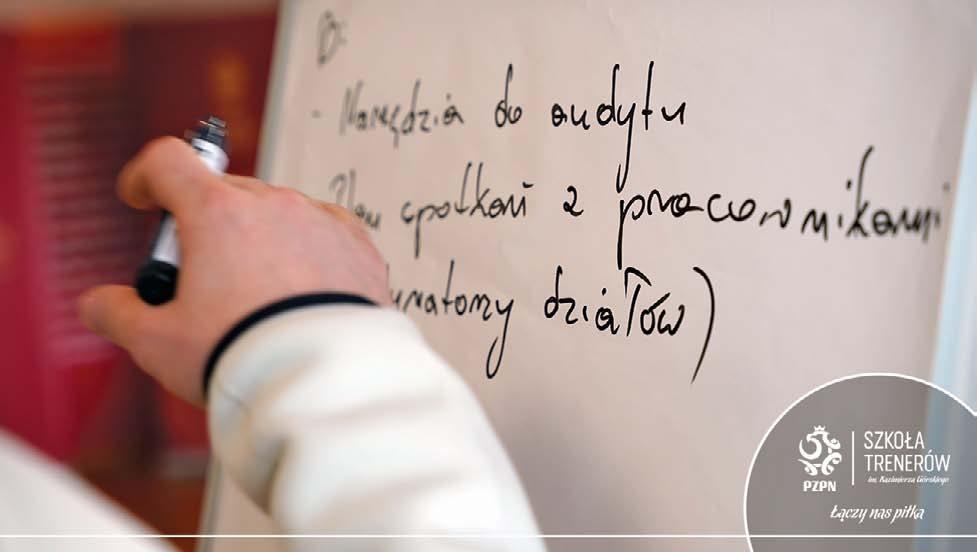 B:
- Narzędzia do audytu
Plan spotkań z pracownikami
działów)
PZPN
SZKOŁA
TRENERÓW
im. Kazimierza Górskiego
Łączy nas piłka